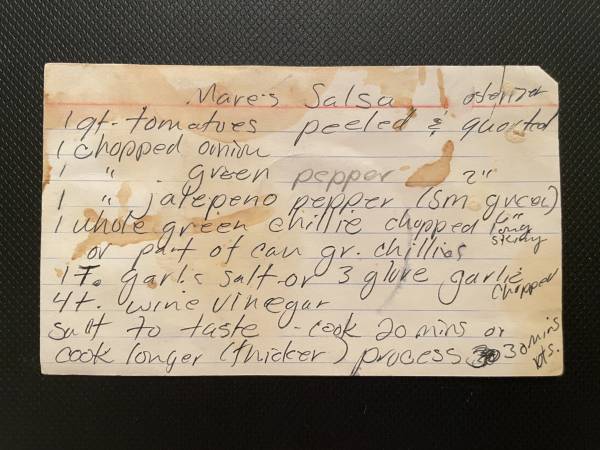 Mare's Salsa osterizer
1 qt. tomatoes peeled & quarted
1 chopped onion
1 " . green pepper 2"
1 " jalepeno pepper (sm green)
1 whole green chillie chopped 6" long skinny
or part of can gr. chillies
1 T. garlic salt or 3 glove garlic chopped
4 t. wine vinegar
Salt to taste - cook 20 mins or
cook longer (thicker) process 30 mins pts.